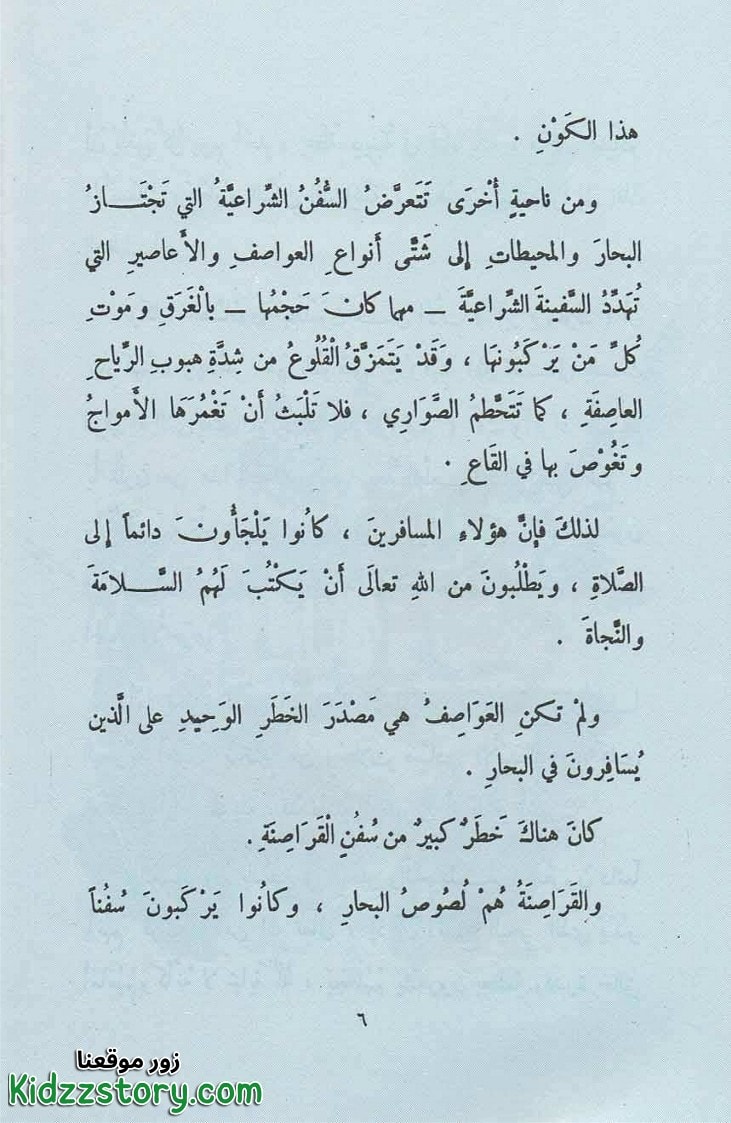 هذا الكَوْنِ .
ومن ناحيةٍ أُخْرَى تَتَعرَّضُ السُّفُنُ الشِّراعيَّةُ التي تَجْتَــازُ
البحارَ والمحيطاتِ إلى شَتَّى أنواعِ العواصفِ والأعاصيرِ التي
تُهَدِّدُ السَّفينةَ الشِّراعيَّةَ ــ مهما كانَ حَجْمُها ــ بالْغَرَقِ ومَوْتِ
كُلِّ مَنْ يَرْكَبُونها ، وَقَدْ يَتَمَزَّقُ الْقُلُوعُ من شِدَّةِ هبوبِ الرِّياحِ
العاصِفَةِ ، كما تَتَحَّطمُ الصَّوَارِي ، فلا تَلْبَثُ أَنْ تَغْمُرَهَا الأمواجُ
وتَغُوْصَ بها في القَاعِ .
لذلكَ فإنَّ هؤلاءِ المسافرينَ ، كانُوا يَلْجَأُونَ دائماً إلى
الصَّلاةِ ، ويَطْلُبونَ من اللهِ تعالَى أَنْ يَكْتُبَ لَهُمُ السَّــلامَةَ
والنَّجاةَ .
ولمْ تكنِ العَوَاصِفُ هي مَصْدَرَ الخَطَرِ الوَحِيدِ على الَّذين
يُسَافِرونَ في البحارِ .
كانَ هناكَ خَطَرٌ كبيرٌ من سُفُنِ الْقَرَاصِنَةِ .
والقَرَاصِنَةُ هُمْ لُصُوصُ البحارِ ، وكانُوا يَرْكَبونَ سُفُناً
٦
زور موقعنا
Kidzzstory.com